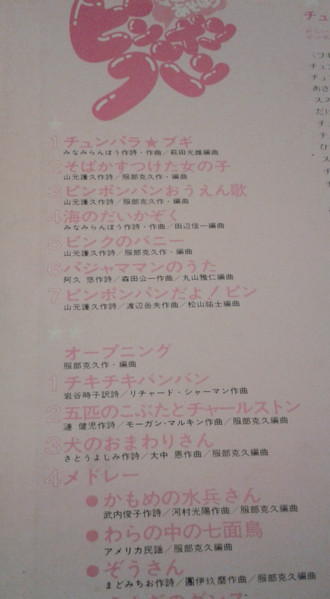 ピンポンパン
1 チュンバラ★ブギ
みなみらんぼう作詩・作曲/萩田光雄編曲
2 そばかすつけた女の子
山元護久作詩/服部克久作・編曲
3 ピンポンパンおうえん歌
山元護久作詩/服部克久作・編曲
4 海のだいかぞく
みなみらんぼう作詩・作曲/田辺信一編曲
5 ピンクのバニー
山元護久作詩/服部克久作・編曲
6 パジャママンのうた
阿久 悠作詩/森田公一作曲/丸山雅仁編曲
7 ピンポンパンだよ!ピン
山元護久作詩/渡辺岳夫作曲/松山祐士編曲
オープニング
服部克久作・編曲
1 チキチキバンバン
岩谷時子訳詩/リチャード・シャーマン作曲
2 五匹のこぶたとチャールストン
漣 健児作詩/モーガン・マルキン作曲/服部克久編曲
3 犬のおまわりさん
さとうよしみ作詩/大中 恩作曲/服部克久編曲
4 メドレー
●かもめの水兵さん
武内俊子作詩/河村光陽作曲/服部克久編曲
●わらの中の七面鳥
アメリカ民謡/服部克久編曲
●ぞうさん
まどみちお作詩/團伊玖磨作曲/服部克久編曲
チュ